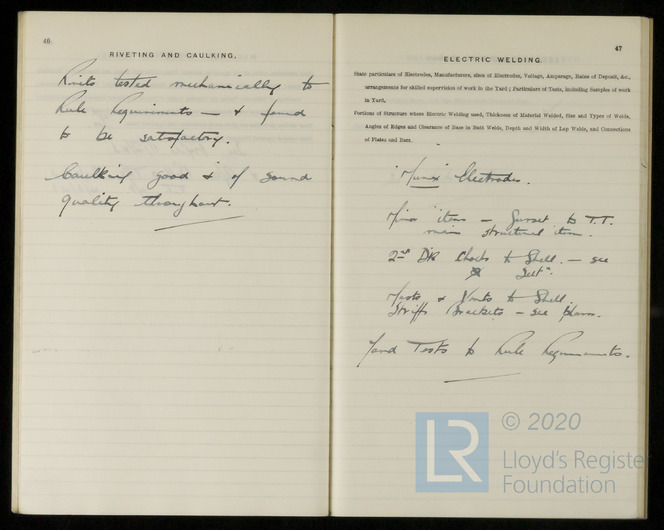 46
RIVETING AND CAULKING.
Rivets tested mechanically to
Rule Requirements — & found
to be satisfactory.
Caulking good & of sound
quality throughout.
47
ELECTRIC WELDING.
State particulars of Electrodes, Manufacturers, sizes of Electrodes, Voltage, Amperage, Rates of Deposit, &c.,
arrangements for skilled supervision of work in the Yard; Particulars of Tests, including Samples of work
in Yard.
Portions of Structure where Electric Welding used, Thickness of Material Welded, Size and Types of Welds,
Angles of Edges and Clearance of Base in Butt Welds, Depth and Width of Lap Welds, and Connections
of Plates and Bars.
Electrodes.
Minor items — to T.T.
main structural item.
2nd Dk Chocks to Shell. — see
& Vents to Shell.
Stiffs Brackets — see plan.
Yard Tests to Rule Requirements.
LR
© 2020
Lloyd's Register
Foundation